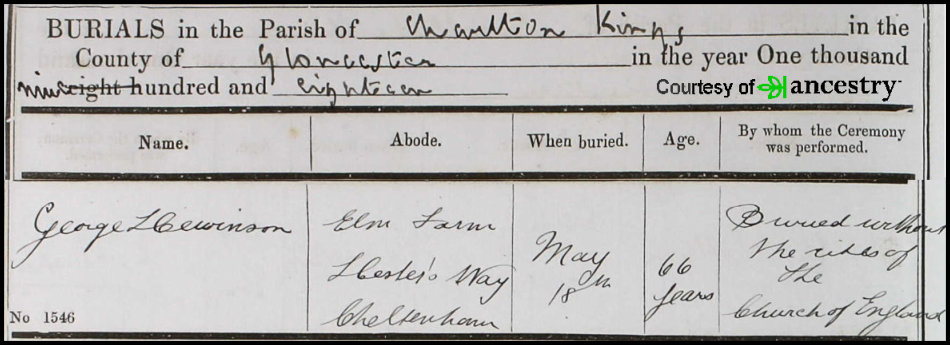 BURIALS in the Parish of Charlton Kings in the
County of Gloucester in the year One thousand
nine eight hundred and eighteen
Courtesy of ancestry
Name.
Abode.
When buried.
Age.
By whom the Ceremony
was performed.
George Hewinson
Elm Farm
Hester's Way
Cheltenham
May
18th
66
years
Buried without
the rites of
the
Church of England
No 1546